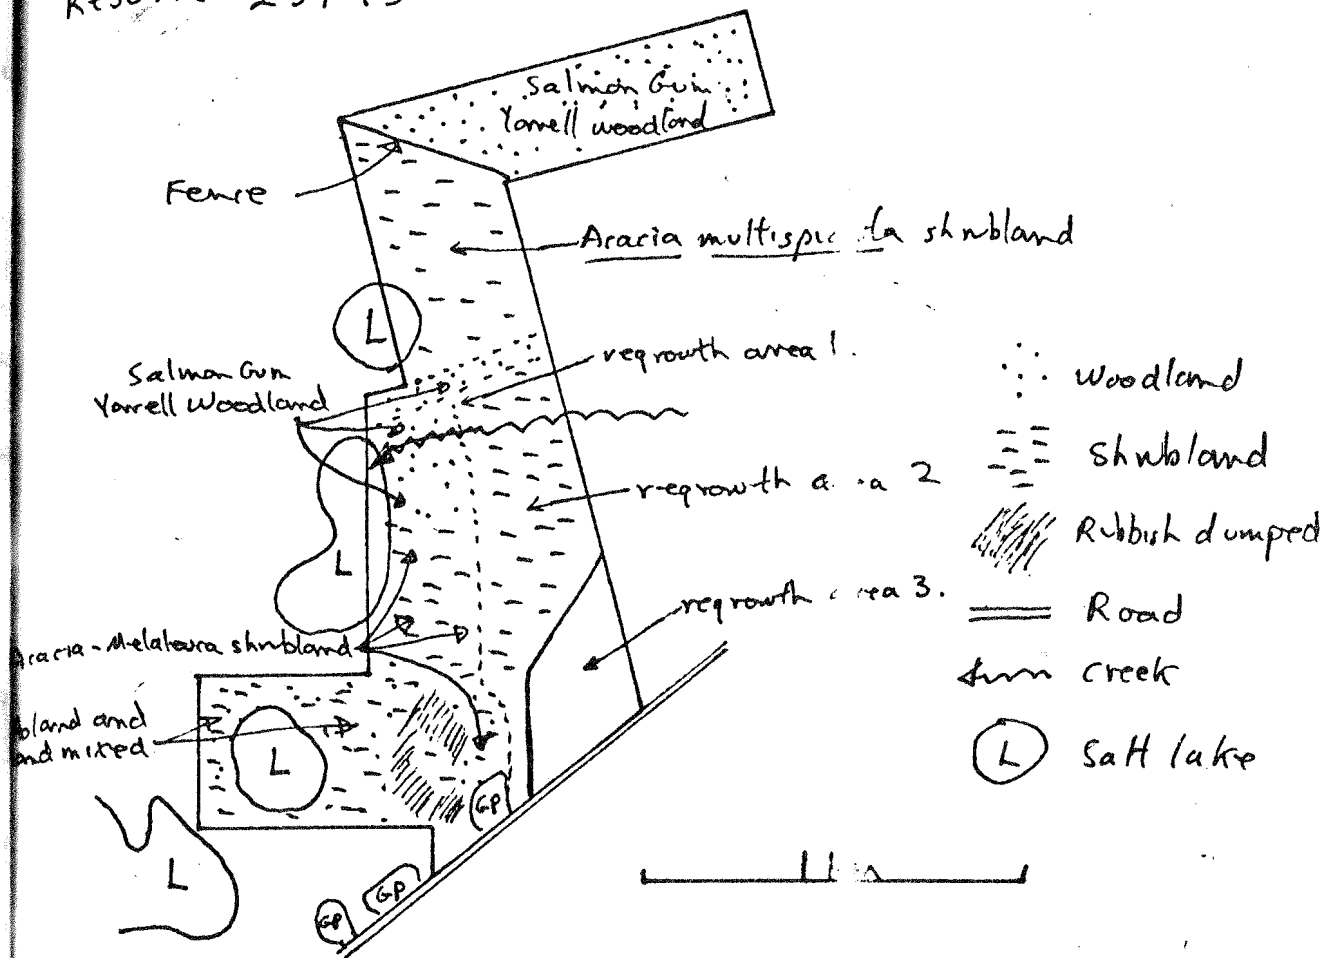 Salmon Gum
Yorrell woodland
Fence
Acacia multispic ta shrubland
L
regrowth area 1.
Salmon Gum
Yorrell Woodland
regrowth a a 2
L
regrowth rea 3.
Acacia - Melaleuca shrubland
bland and
nd mixed
L
GP
L
GP
GP
Woodland
Shrubland
Rubbish dumped
Road
creek
L Salt lake